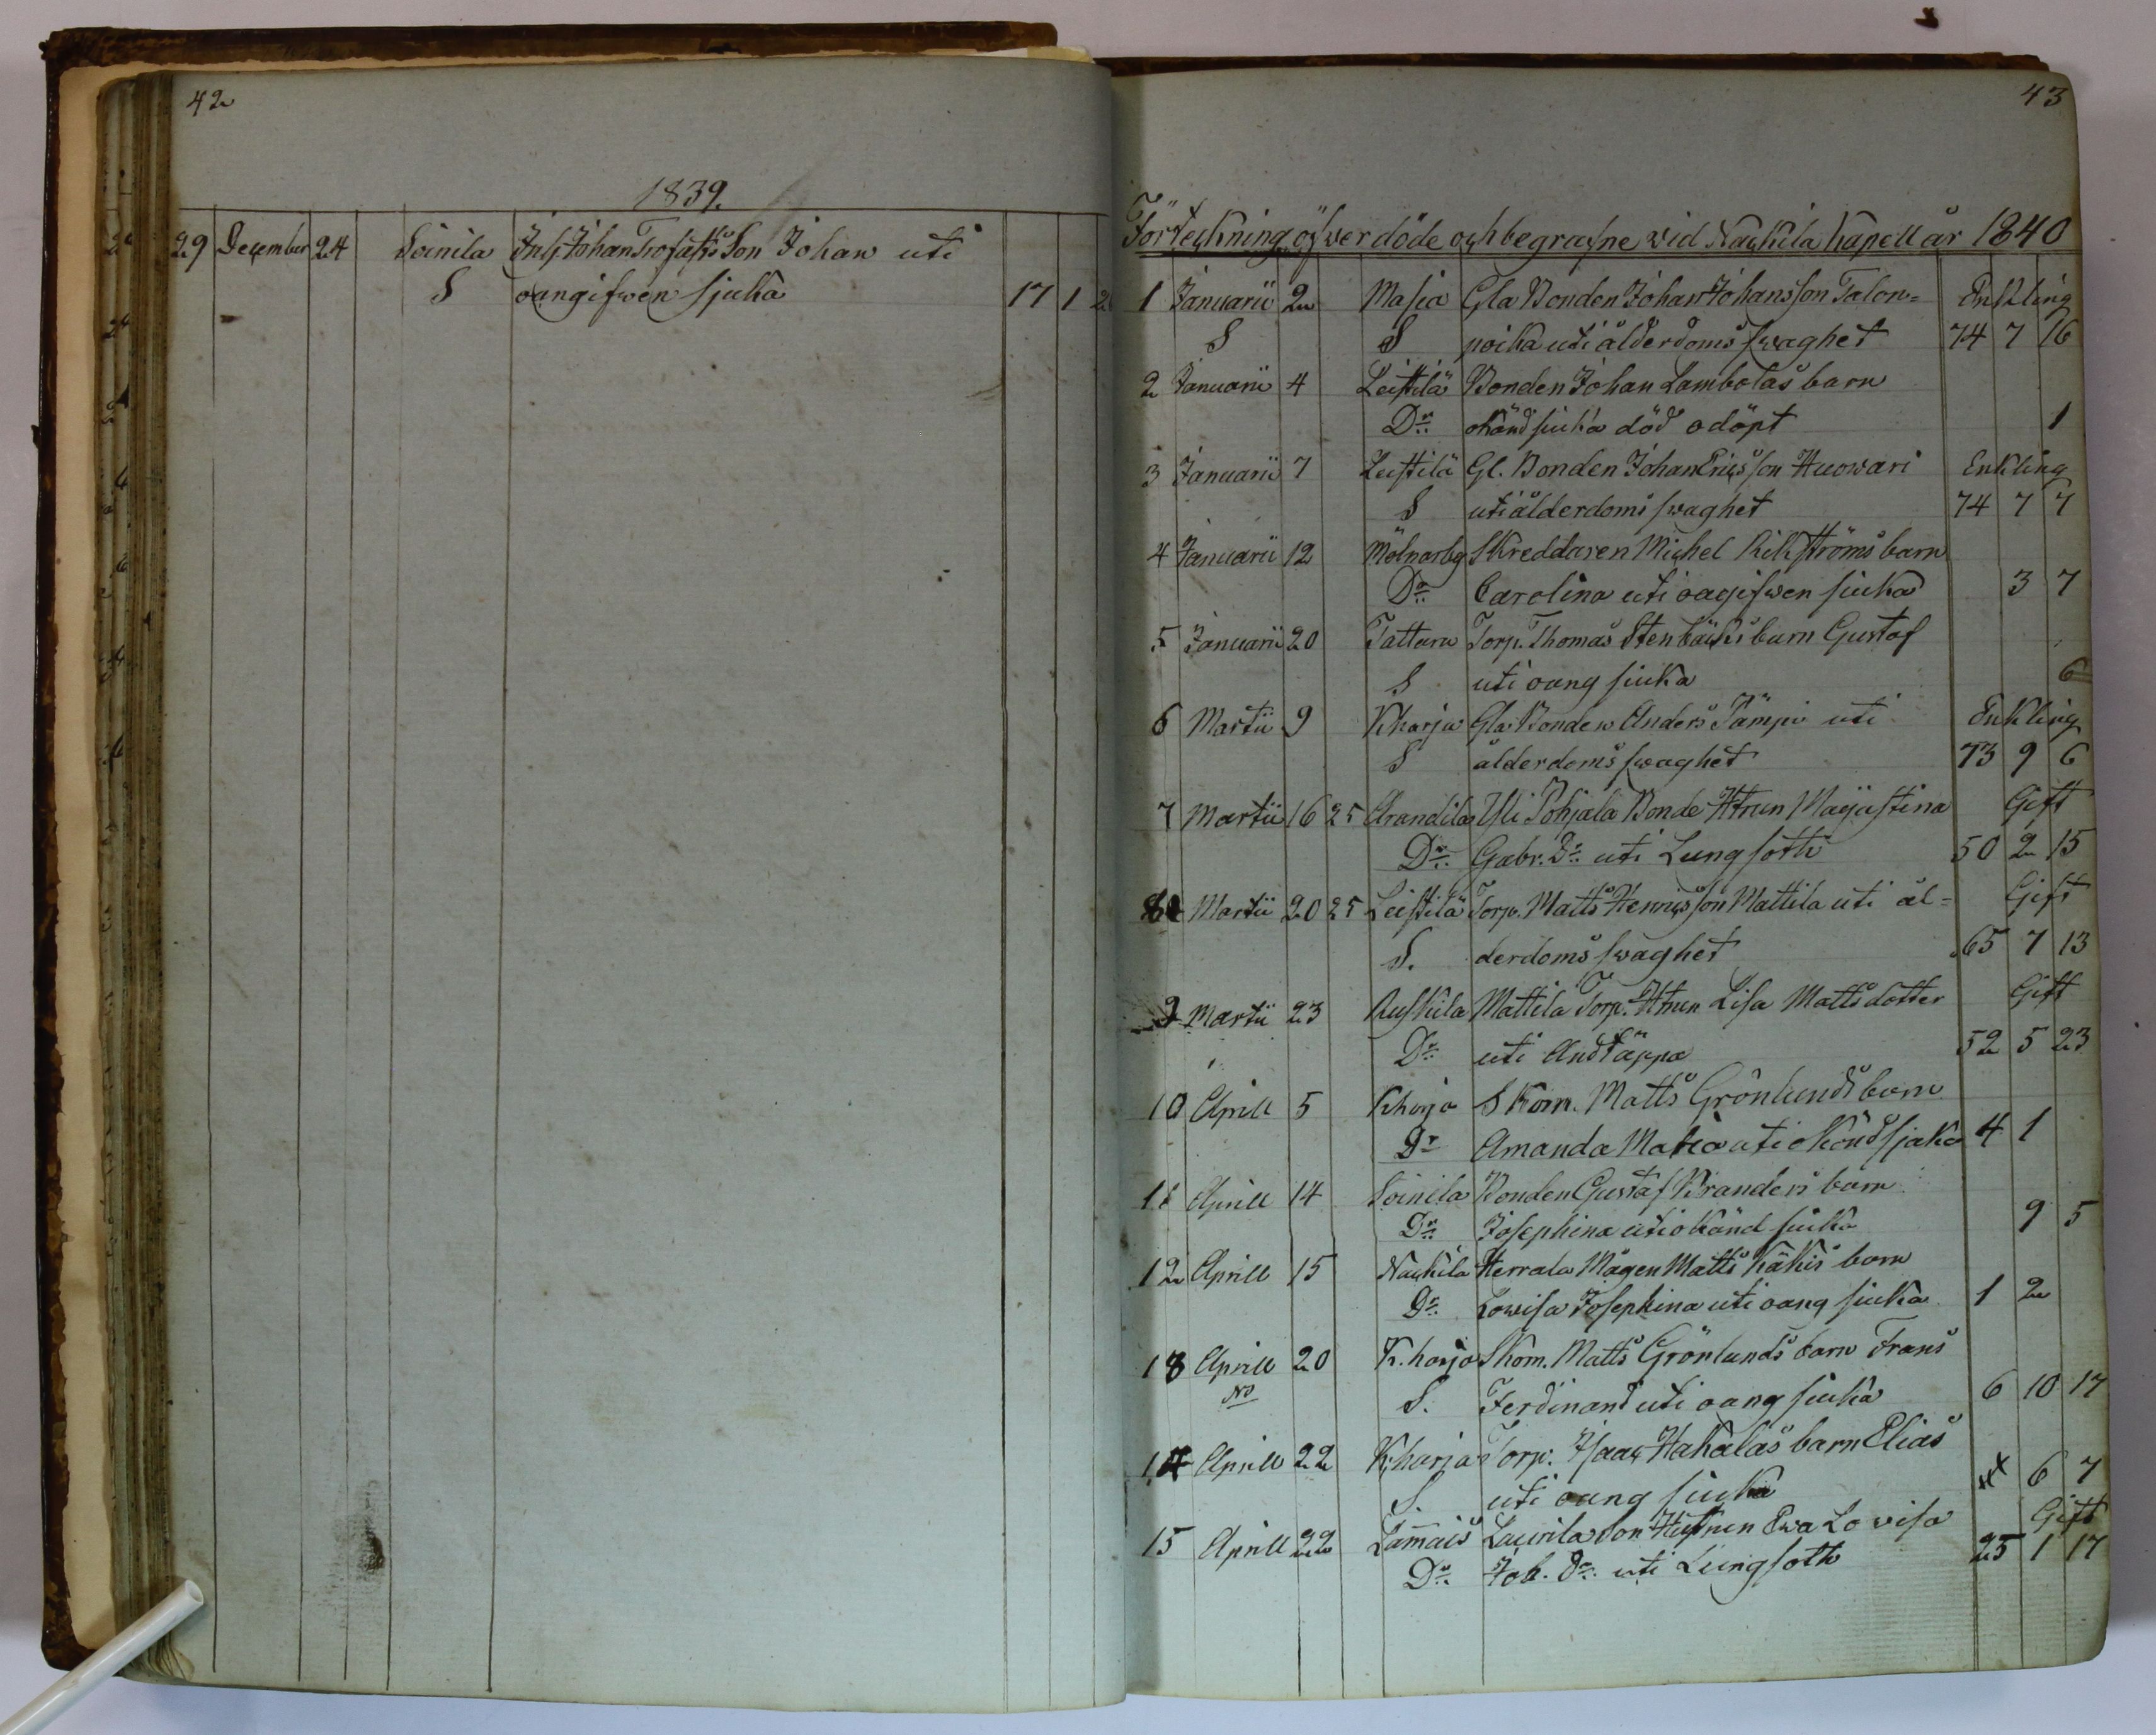 42
1839.
29 December 24 Soinila Johan Son Johan uti
S oangifwen sjuka 17 1 2
43
Förteckning öfwer döde och begrafne wid Nackila Kapell år 1840
1 Januarii 2 Masia Gla Bonden Johan Johansson Talon= Enkling
S S poika uti ålderdoms swaghet 74 7 16
2 Januarii 4 Leistilä Bonden Johan Lambolas barn
Dr. okänd siuka död odöpt 1
3 Januarii 7 Leistilä Gl. Bonden Johan Ericsson Huowari Enkling
S uti ålderdoms swaghet 74 7 7
4 Januarii 12 Mölnarby Skreddaren Michel Rikströms barn
Dr. Carolina uti oagifwen siuka 3 7
5 Januarii 20 Tattara Torp. Thomas Stenbäcks barn Gustaf
S uti oang siuka 6
6 Martii 9 Kharja Gla Bonden Anders Tämpi uti Enkling
S ålderdoms swaghet 73 9 6
7 Martii 16 25 Arandila Yli Pohjala Bonde Htrun Majastina Gift
Dr. Gabr. Dr. uti Lungsoth 50 2 15
8 Martii 20 25 Leistilä Torp. Matts Hennicsson Mattila uti ål= Gift
S. derdoms swaghet 65 7 13
9 Martii 23 Ruskila Mattila Torp. Htrun Lisa Mattsdotter Gift
Dr uti Andtäppa 52 5 23
10 Aprill 5 Kharja Skom. Matts Grönlunds barn
Dr Amanda Maria uti okänd sjuka 4 1
11 Aprill 14 Soinila Bonden Gustaf Branders barn
Dr. Josephina uti okänd siuka 9 5
12 Aprill 15 Nackila Herrala Mågen Matts Käkis barn
Dr. Lowisa Josephina uti oang siuka 1 2
13 Aprill 20 K.harja Skom. Matts Grönlunds barn Frans
No S. Ferdinand uti oang siuka 6 10 17
14 Aprill 22 K.harja Torp. Isaac Hakalas barn Elias
S. uti oang siuka 6 7
15 Aprill 22 Lam̄ais Laurila Son Hustrun Ewa Lovisa Gift
Dr. Joh. Dr. uti Lungsoth 25 1 17